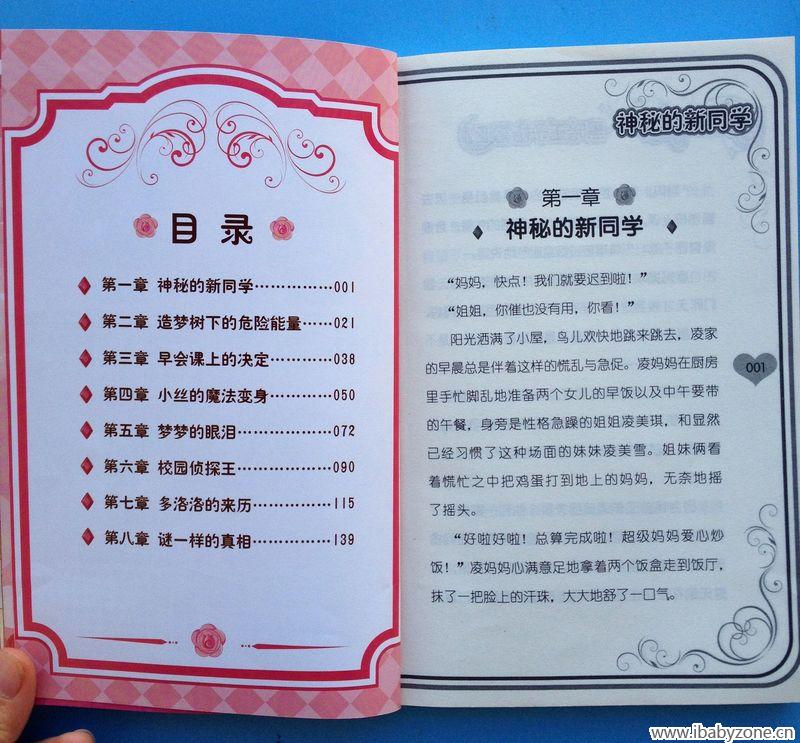 目录
第一章 神秘的新同学……………001
第二章 造梦树下的危险能量……021
第三章 早会课上的决定…………038
第四章 小丝的魔法变身…………050
第五章 梦梦的眼泪………………072
第六章 校园侦探王………………090
第七章 多洛洛的来历……………115
第八章 谜一样的真相……………139
神秘的新同学
第一章
神秘的新同学
“妈妈，快点！我们就要迟到啦！”
“姐姐，你催也没有用，你看！”
阳光洒满了小屋，鸟儿欢快地跳来跳去，凌家
的早晨总是伴着这样的慌乱与急促。凌妈妈在厨房
里手忙脚乱地准备两个女儿的早饭以及中午要带
的午餐，身旁是性格急躁的姐姐凌美琪，和显然
已经习惯了这种场面的妹妹凌美雪。姐妹俩看
着慌忙之中把鸡蛋打到地上的妈妈，无奈地摇
了摇头。
“好啦好啦！总算完成啦！超级妈妈爱心炒
饭！”凌妈妈心满意足地拿着两个饭盒走到饭厅，
抹了一把脸上的汗珠，大大地舒了一口气。
001
www.ibabyzone.cn